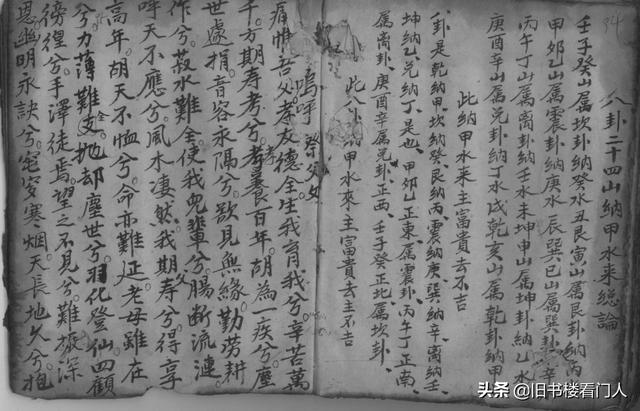 34
八卦二十四山納甲水来總論
壬子癸山属坎卦納癸水丑艮寅山属艮卦納丙
甲卯乙山属震卦納庚水辰巽巳山属巽卦辛
丙午丁山属离卦納壬水未坤申山属坤卦納乙水
庚酉辛山属兑卦納丁水戌乾亥山属乾卦納甲
此納甲水来主富貴去不吉
八卦是乾納甲坎納癸艮納丙震納庚巽納辛离納壬
坤納乙兑納丁是也甲卯乙正東属震卦丙午丁正南
属离卦庚酉辛属兑卦正西壬子癸正北属坎卦
此八納甲水来主富貴去主不吉
祭父文
嗚呼
痛惟吾父孝友德全生我育我兮辛苦萬
千方期寿考兮孝養百年胡為一疾兮塵
世遽捐音容永隔兮欲見無緣勤劳耕
作兮菽水難全使我兒輩兮腸断流漣
呼天不應兮風木凄然我期父寿兮得享
高年胡天不恤兮命亦難延老母雖在
兮力薄難支全抛却塵世兮羽化登仙四顧
徬徨兮手澤徒焉望之不見兮難报深
恩幽明永訣兮窀穸寒烟天長地久兮抱
头条@旧书楼看门人